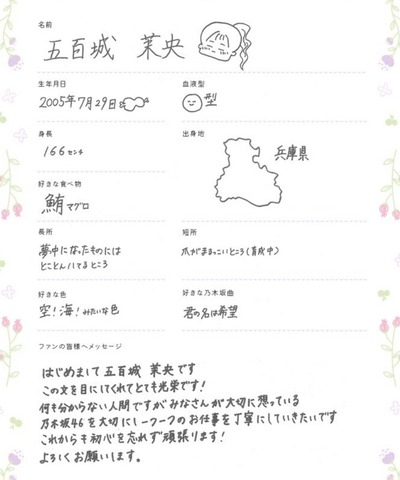 名前
五百城 茉央
生年月日
2005年7月29日
血液型
型
身長
166センチ
出身地
兵庫県
好きな食べ物
鮪マグロ
長所
夢中になったものには
とことんハマるところ
短所
爪がまるっこいところ(育成中)
好きな色
空!海!みたいな色
好きな乃木坂曲
君の名は希望
ファンの皆様へメッセージ
はじめまして 五百城 茉央です
この文を目にしてくれてとても光栄です!
何も分からない人間ですがみなさんが大切に想っている
乃木坂46を大切に一つ一つのお仕事を丁寧にしていきたいです
これからも初心を忘れず頑張ります!
よろしくお願いします。